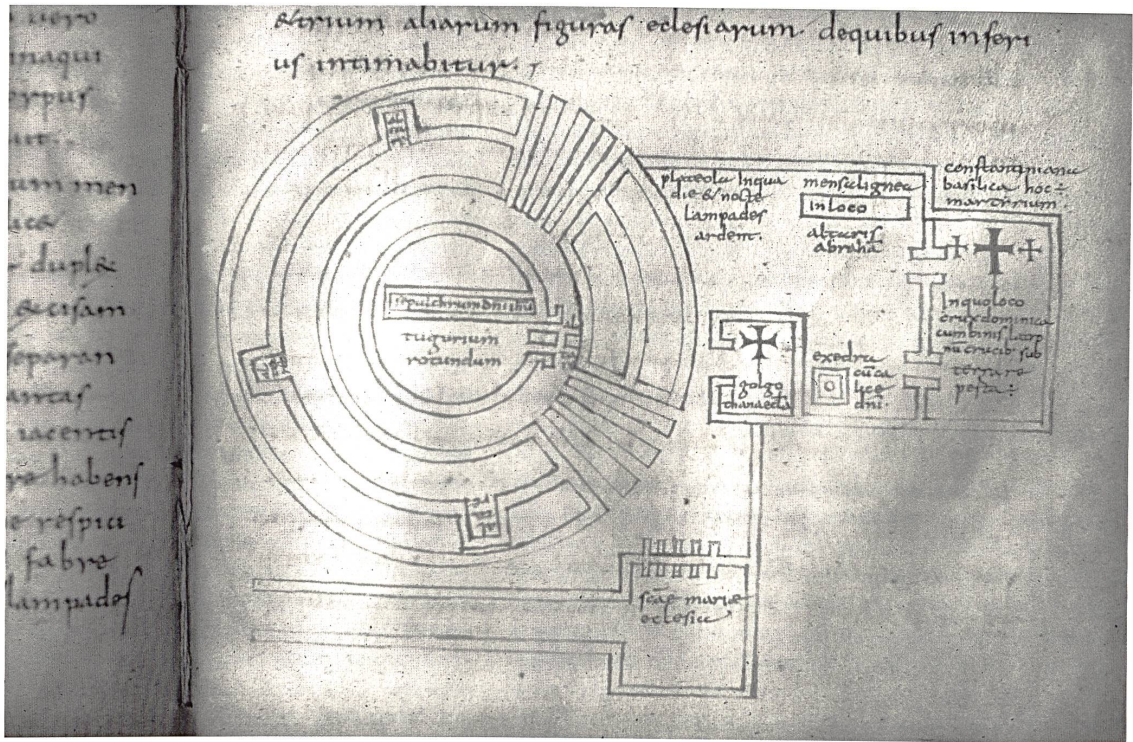 uero
inaqui
erpus
uit.
um men
ica
duplex
& cisam
separan
aritas
iacentis
re habens
e respici
fabre
lampades
& trium aliarum figuras eclesiarum. de quibus inferi
us intimabitur.
altare
altare
altare
sepulchrum dni ihu
tugurium
rotundum
plateola In qua
die & nocte
lampades
ardent.
mensa lignea
in loco
altaris
abraham
constantiniana
basilica hoc ÷
martirium.
In quo loco
crux dominica
cum binis latro
nū crucib; sub
terra re
perta:
golgo
thana ecla
exedra
cū ca
lice
dni.
scae mariae
eclesia